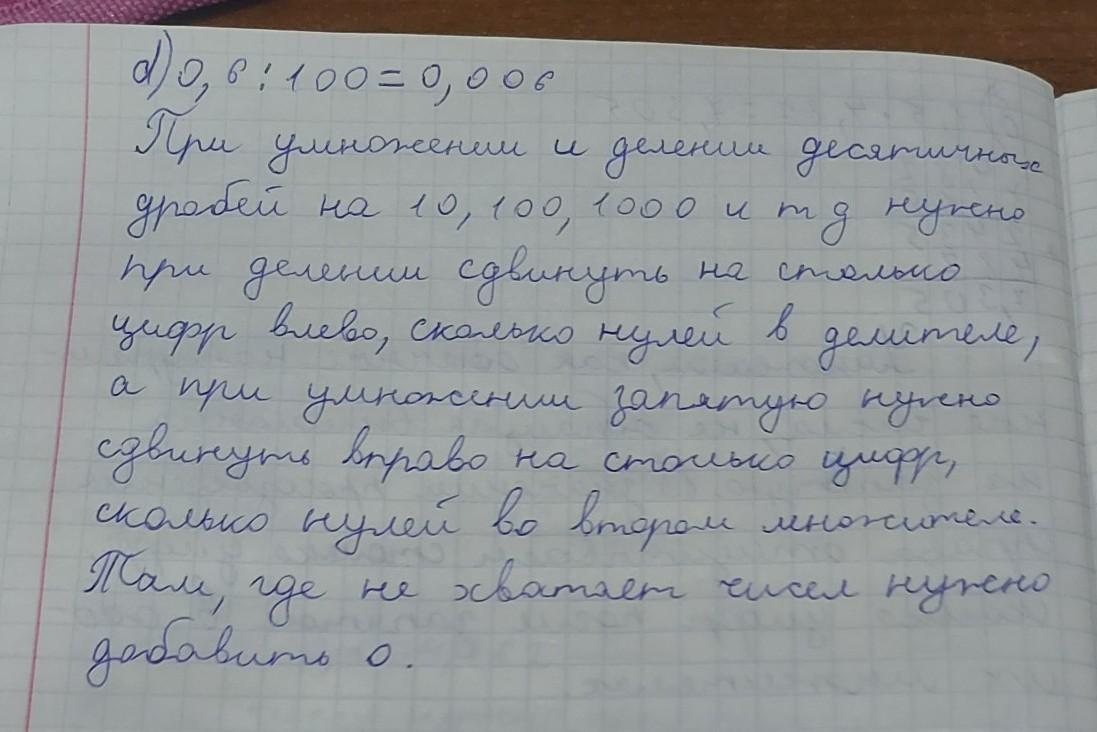 d) 0,6 : 100 = 0,006
При умножении и делении десятичных
дробей на 10, 100, 1000 и т д нужно
при делении сдвинуть на столько
цифр влево, сколько нулей в делителе,
а при умножении запятую нужно
сдвинуть вправо на столько цифр,
сколько нулей во втором множителе.
Там, где не хватает чисел нужно
добавить 0.